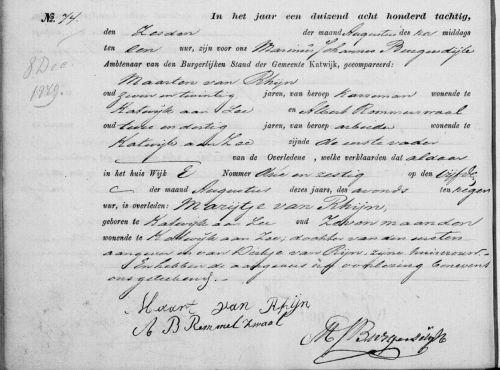 No. 74.
In het jaar een duizend acht honderd tachtig,
den Zesden der maand Augustus des na middags
ten een uur, zijn voor ons Marinus Johannes Burgersdijk
Ambtenaar van den Burgerlijken Stand der Gemeente Katwijk, gecompareerd:
8 Dec
1879.
Maarten van Rhijn
oud zeven en twintig jaren, van beroep wonende te
Katwijk aan Zee en Albert Rommel
oud en dertig jaren, van beroep arbeider wonende te
Katwijk aan Zee zijnde de eerste vader
van de Overledene, welke verklaarden dat aldaar
in het huis Wijk E Nommer drie en zestig op den vijfde
der maand Augustus dezes jaars, des avonds ten negen
uur, is overleden: Marijtje van Rhijn,
geboren te Katwijk aan Zee oud Zeven maanden
wonende te Katwijk aan Zee, dochter van den eersten
aangever en van van Rijn, zijne huisvrouw.
En hebben de aangevers na voorlezing benevens
ons geteekend.
Maart van Rhijn
A B Remmelzwaal
M J Burgersdijk